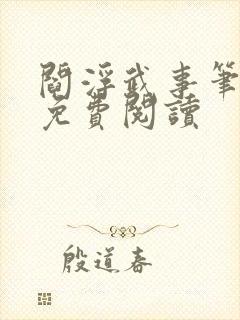 閻浮武事筆
免費閱讀
殷道春